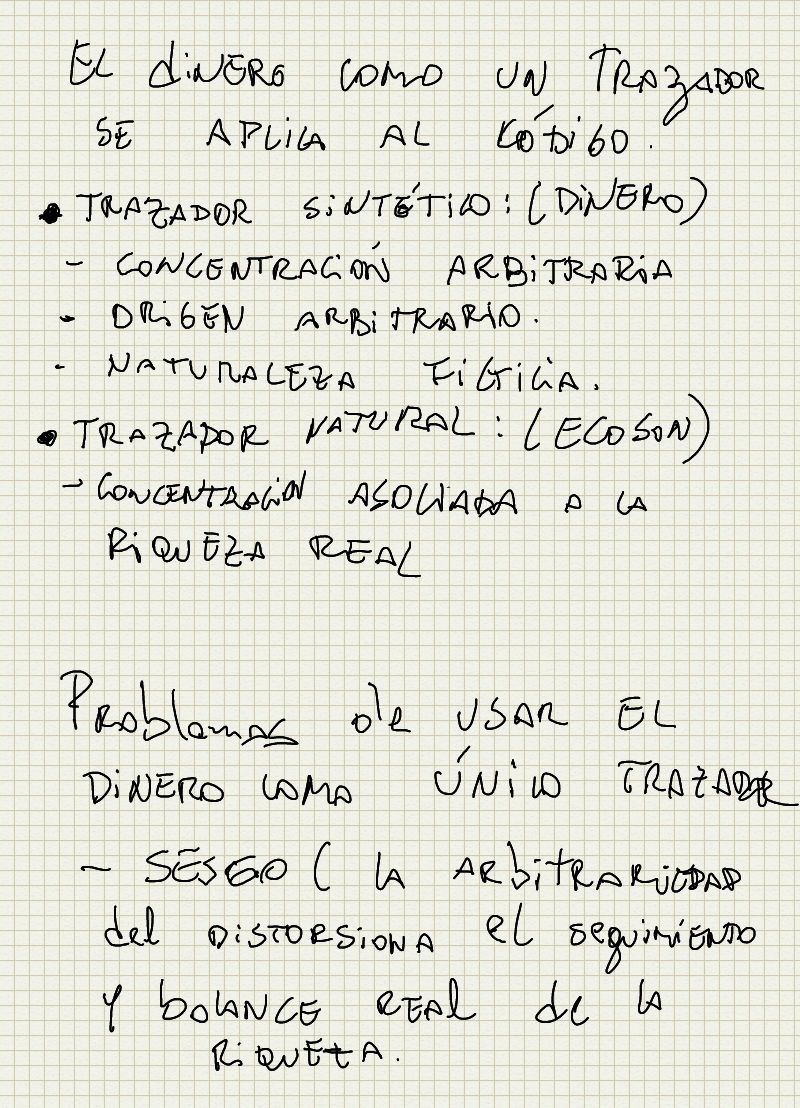 EL diNERO COMO UN TRAZADOR
SE APLiCA AL CÓDiGO.
• TRAZADOR SiNTÉTiCO: (DiNERO)
- CONCENTRACiÓN ARBiTRARiA
- ORiGEN ARBiTRARiO.
- NATURALEZA FiCTiCiA.
• TRAZADOR NATURAL: (ECOSON)
- CONCENTRACiÓN ASOCiADA A LA
RiQUEZA REAL
Problemas de USAR EL
DiNERO COMO ÚNiCO TRAZADOR
- SESGO ( LA ARbiTRARiEDAD
del DiSTORSiONA el seguiMiENTO
Y bALANCE REAL de LA
RiQUEZA.